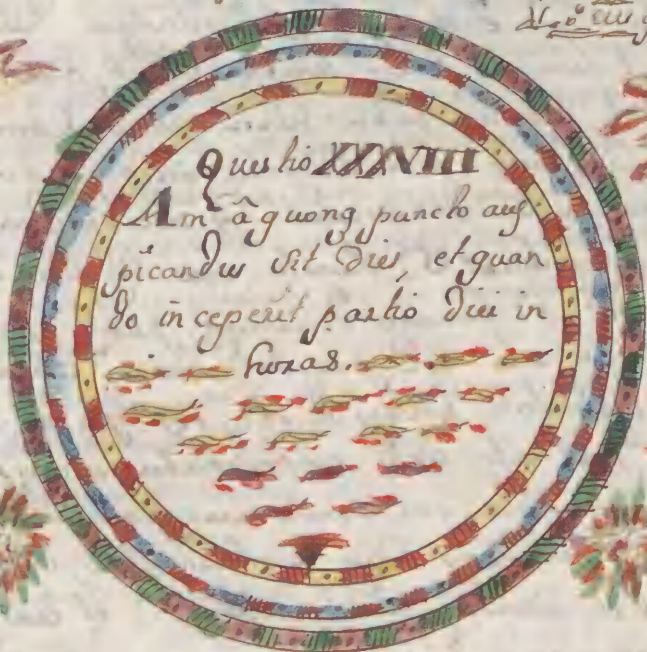 Questio XXXVIIII
Am â quonꝗ puncto aus
picandus sit Dies, et quan
do inceperit partio Diei in
horas.